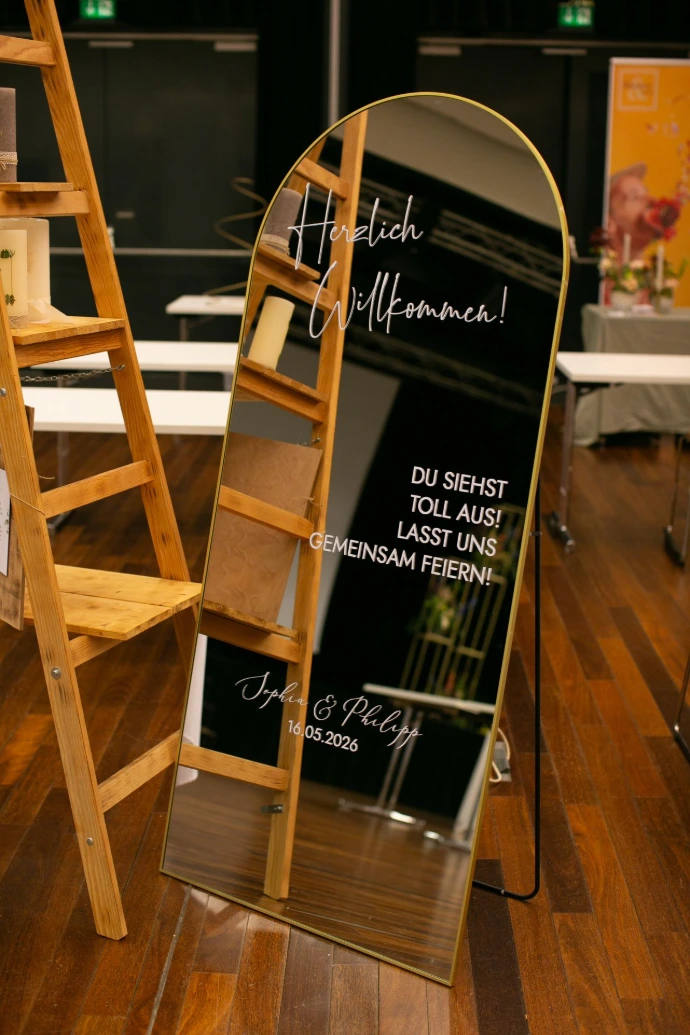 Herzlich
Willkommen!
DU SIEHST
TOLL AUS!
LASST UNS
GEMEINSAM FEIERN!
Sophia & Philipp
16.05.2026